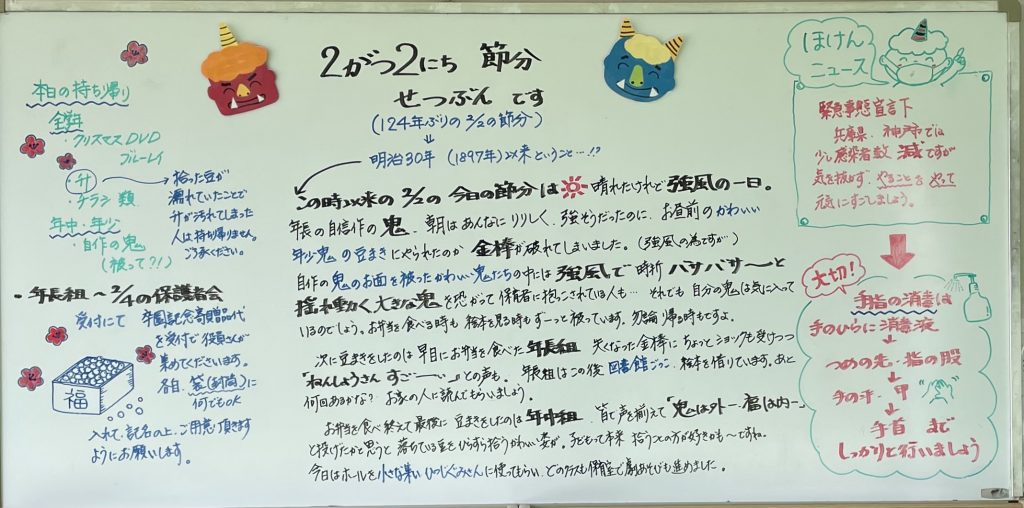 本日の持ち帰り
全年
・クリスマスDVD
ブルーレイ
・升
・チラシ類
→拾った豆が
濡れていたことで
升が汚れてしまった
人は持ち帰りません。
ご了承ください。
年中・年少
・自作の鬼
(被って?!)
・年長組〜2/4の保護者会
受付にて 卒園記念寄贈品代
を受付で役員さんが
集めてくださいます。
各自、袋(封筒)に
何でもOK
入れて、記名の上、ご用意頂きます
ようにお願いします。
福
2がつ2にち 節分
せつぶん です
(124年ぶりの2/2の節分)
↓
明治30年 (1897年)以来ということ…!?
この時以来の2/2の今日の節分は 晴れたけれど強風の一日。
年長の自信作の鬼、朝はあんなにりりしく、強そうだったのに、お昼前のかわいい
年少鬼の豆まきにやられたのか 金棒が破れてしまいました。(強風の為ですが)
自作の鬼のお面を被ったかわいい鬼たちの中には強風で時折バサバサ〜と
揺れ動く大きな鬼を恐がって保育者に抱っこされている人も… それでも自分の鬼は気に入って
いるのでしょう。お弁当を食べる時も 絵本を見る時もずーっと被っています。勿論帰る時もですよ。
次に豆まきをしたのは早目にお弁当を食べた年長組 失くなった金棒にちょっとショックも受けつつ
「ねんしょうさん すごーい」との声も。年長組はこの後 図書館ごっこ、絵本を借りています。あと
何回あるかな? お家の人に読んでもらいましょう。
お弁当を食べ終えて最後に 豆まきをしたのは年中組 皆で声を揃えて「鬼は外ー、福は内ー」
と投げたかと思うと落ちている豆をひたすら拾うかわいい姿が。子どもって本来 拾うことの方が好きかも〜ですね。
今日はホールを小さな集い ひつじぐみさんに使ってもらい、どのクラスも保育室で劇あそびも進めました。
ほけん
ニュース
緊急事態宣言下
兵庫県、神戸市では
少し感染者数 減ですが
気を抜かず、やることをやって
元気にすごしましょう。
大切!
手指の消毒は
手のひらに消毒液
↓
つめの先・指の股
↓
手の平・甲
↓
手首 まで
しっかりと行いましょう